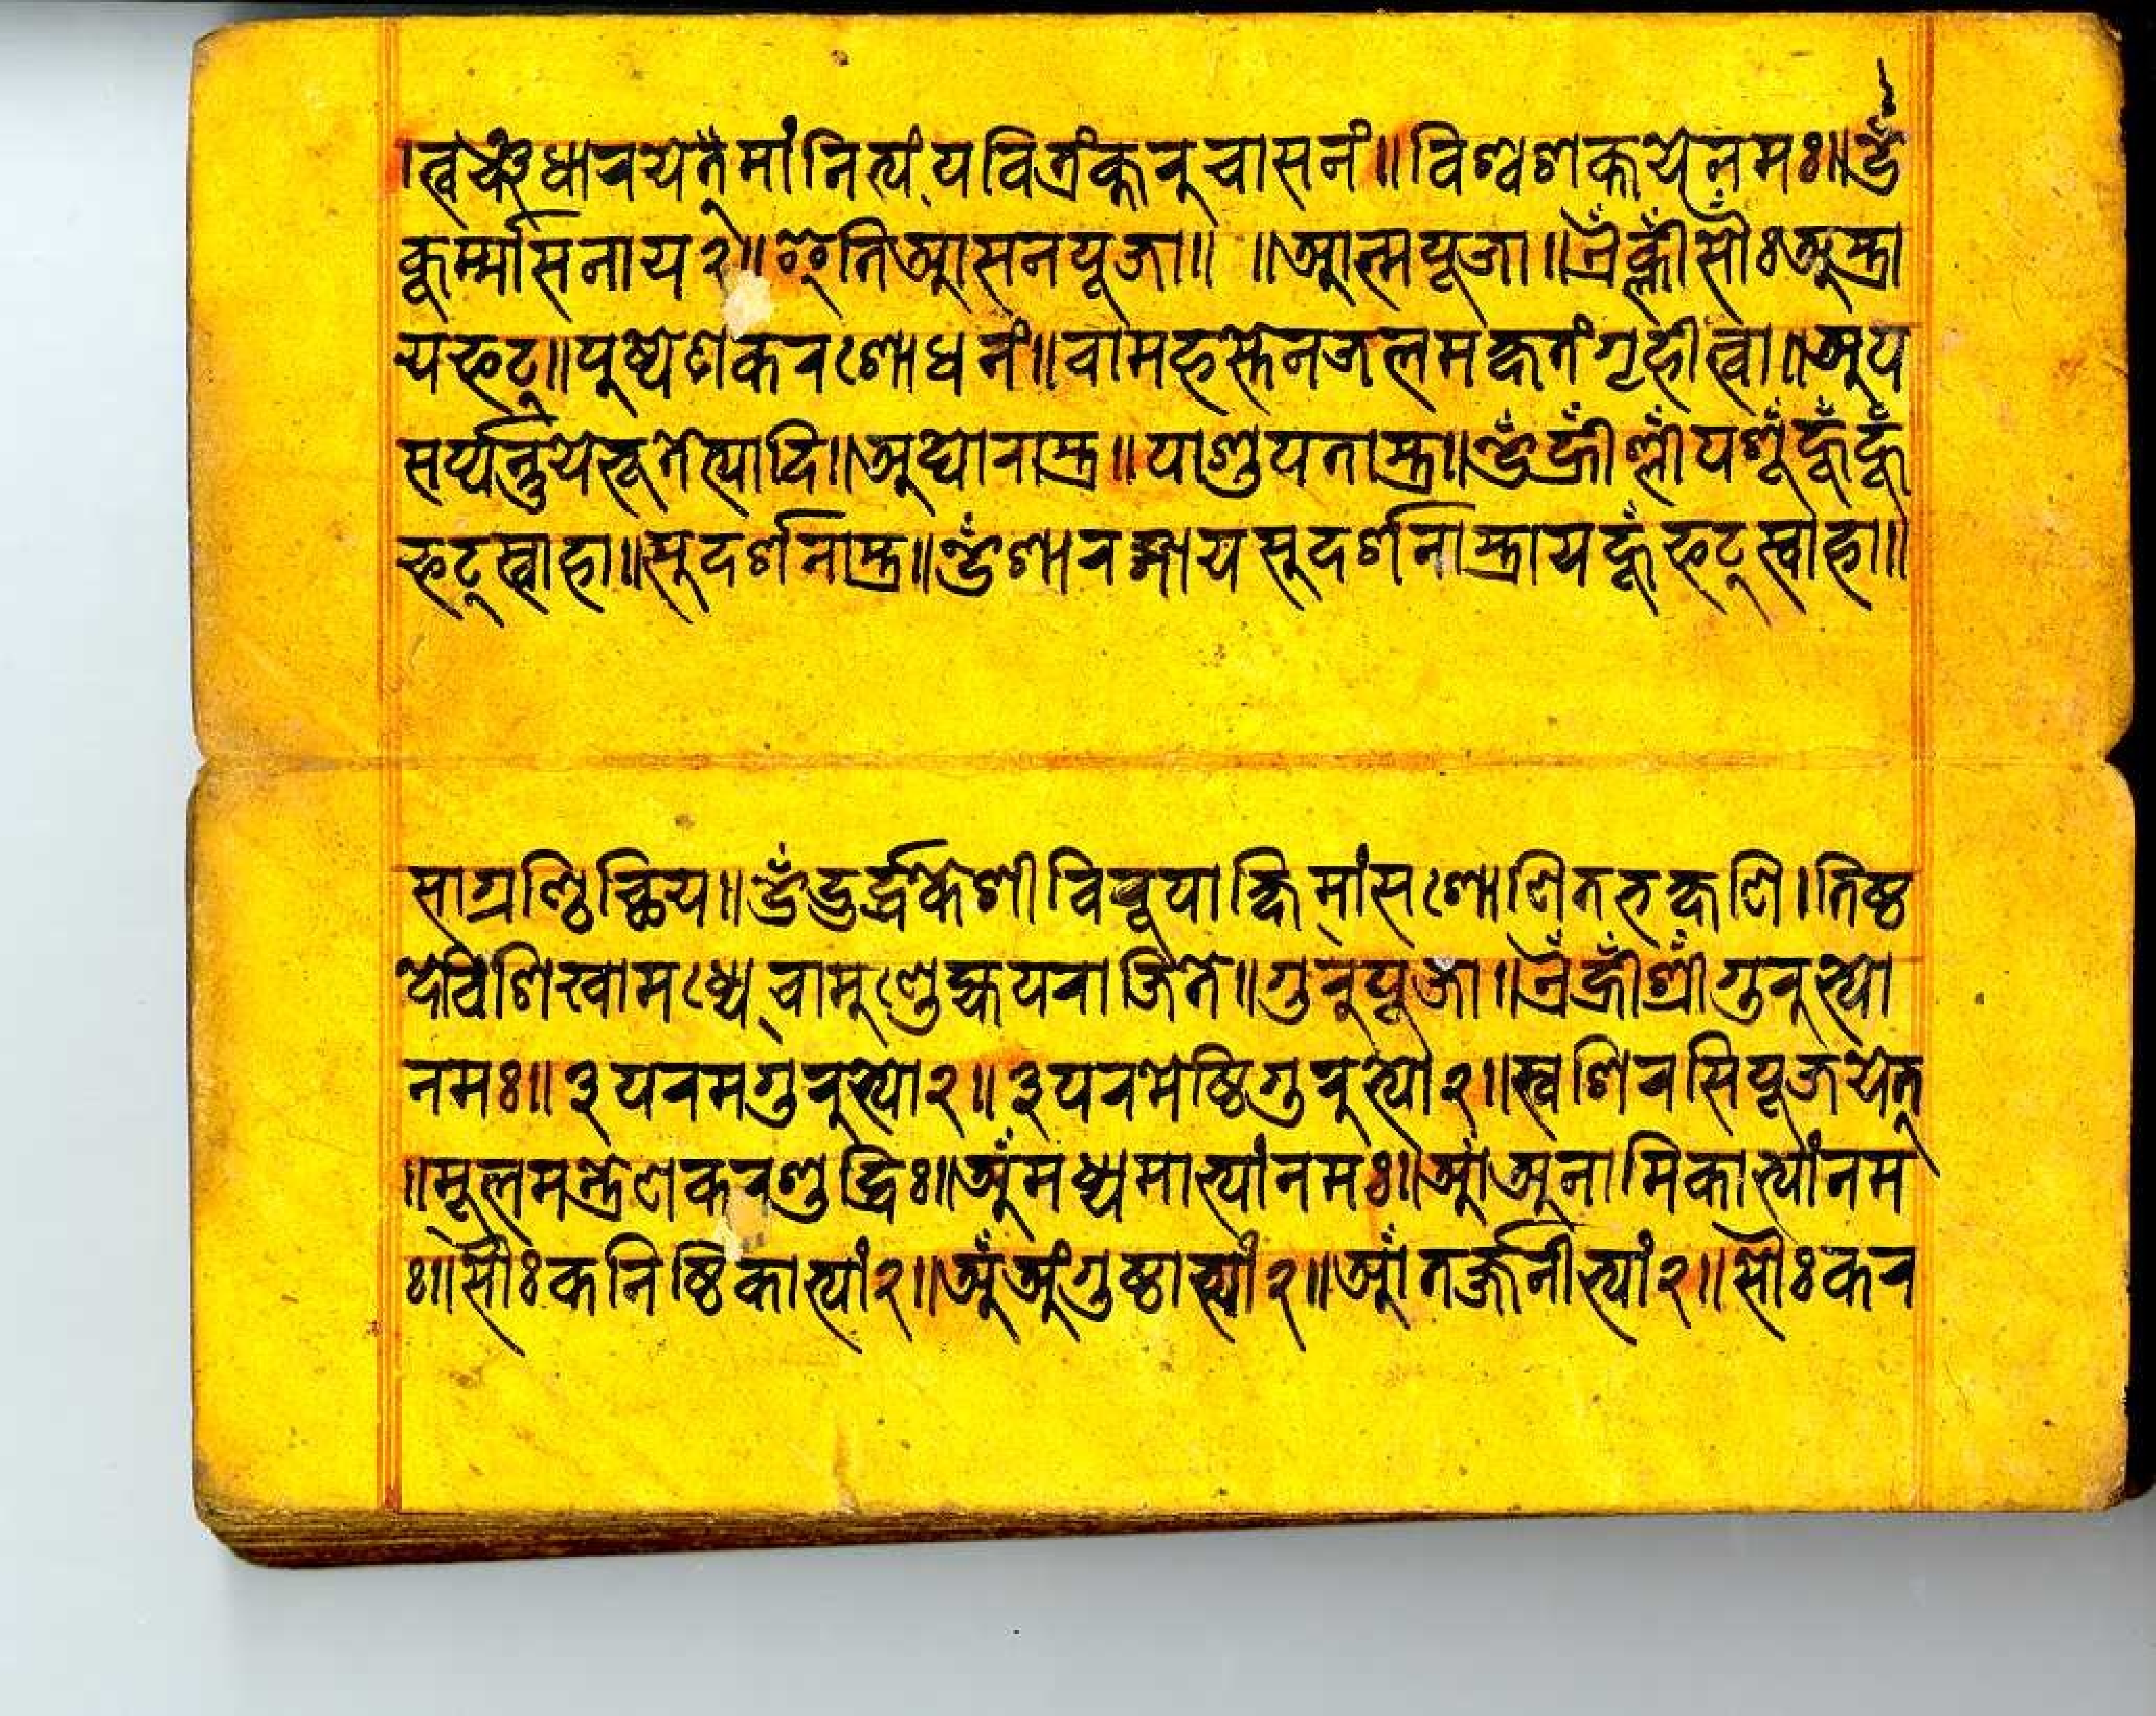 । त्वञ्च धारयेत् मां नित्यं पवित्रं कुरु चासनं ॥ विश्वशक्तये नमः ॥ ॐ
कूर्म्मासनाय २ ॥ इति आसनपूजा ॥ ॥ आत्मपूजा ॥ ऐँ क्लीँ सौँः अस्त्रा
य फट् ॥ पुष्पेण करशोधनं ॥ वामहस्तेन जलमक्षतं गृहीत्वा ॥ अप
सर्प्पन्तु ये भूतेत्यादि ॥ अघोरास्त्र ॥ पाशुपतास्त्र ॥ ॐ ह्रीँ श्लीँ पशूँ हूँ हूँ
फट् स्वाहा ॥ सुदर्शनास्त्र ॥ ॐ शारङ्गाय सुदर्शनास्त्राय हूँ फट् स्वाहा ॥
सा ग्रण्ठिच्छिय ॥ ॐ दुर्द्धकेशी विरूपाक्षि मांसशोणितभक्षणि । तिष्ठ
देवि शिखामध्ये चामुण्डे ह्यपराजिते ॥ गुरुपूजा ॥ ऐँ ह्रीँ श्रीँ गुरुभ्यो
नमः ॥ ३ परमगुरुभ्यो २ ॥ ३ परमेष्ठिगुरुभ्यो २ ॥ स्वशिरसि पूजयेत्
॥ मूलमन्त्रेण करशुद्धिः ॥ अँ मध्यमाभ्यां नमः ॥ आँ अनामिकाभ्यां नम
ः ॥ सौः कनिष्ठिकाभ्यां २ ॥ अँ अंगुष्ठाभ्यां २ ॥ आँ तर्ज्जनीभ्यां २ ॥ सौः कर